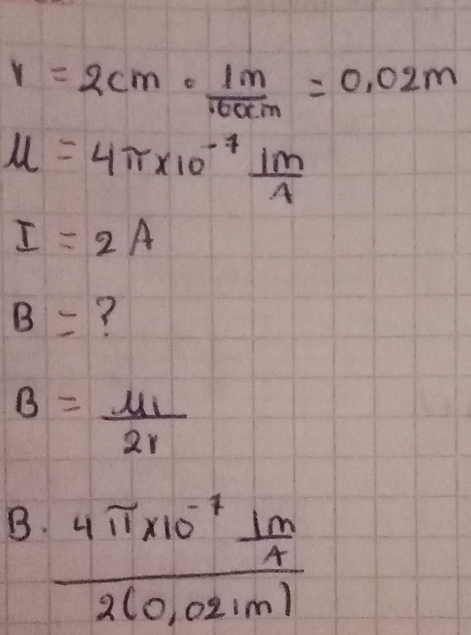 r = 2cm • 1m/100cm = 0,02m
μ = 4π×10⁻⁷ 1m/A
I = 2 A
B = ?
B = μI/2r
B. 4π×10⁻⁷ 1m/A / 2(0,021m)